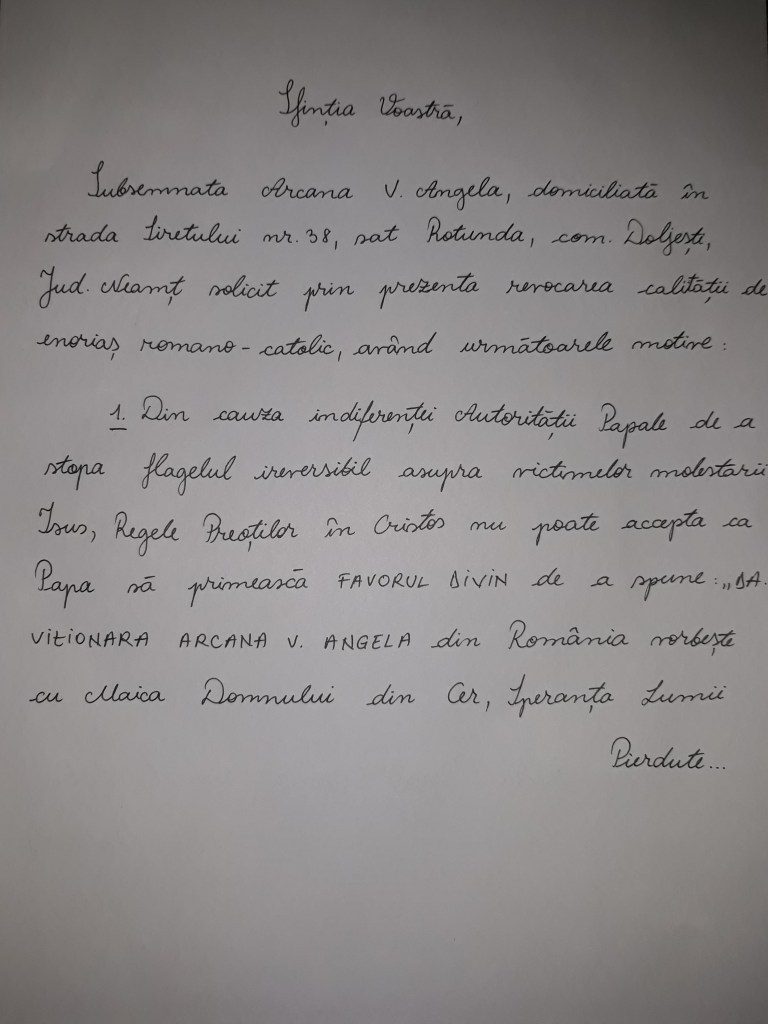 Sfinția Voastră,
Subsemnata Arcana V. Angela, domiciliată în
strada Siretului nr. 38, sat Rotunda, com. Doljești,
Jud. Neamț solicit prin prezenta revocarea calității de
enoriaș romano-catolic, având următoarele motive:
1. Din cauza indiferenței Autorității Papale de a
stopa flagelul ireversibil asupra victimelor molestării
Isus, Regele Preoților în Cristos nu poate accepta ca
Papa să primească FAVORUL DIVIN de a spune: „DA.
VIZIONARA ARCANA V. ANGELA din România vorbește
cu Maica Domnului din Cer, Speranța Lumii
Pierdute...